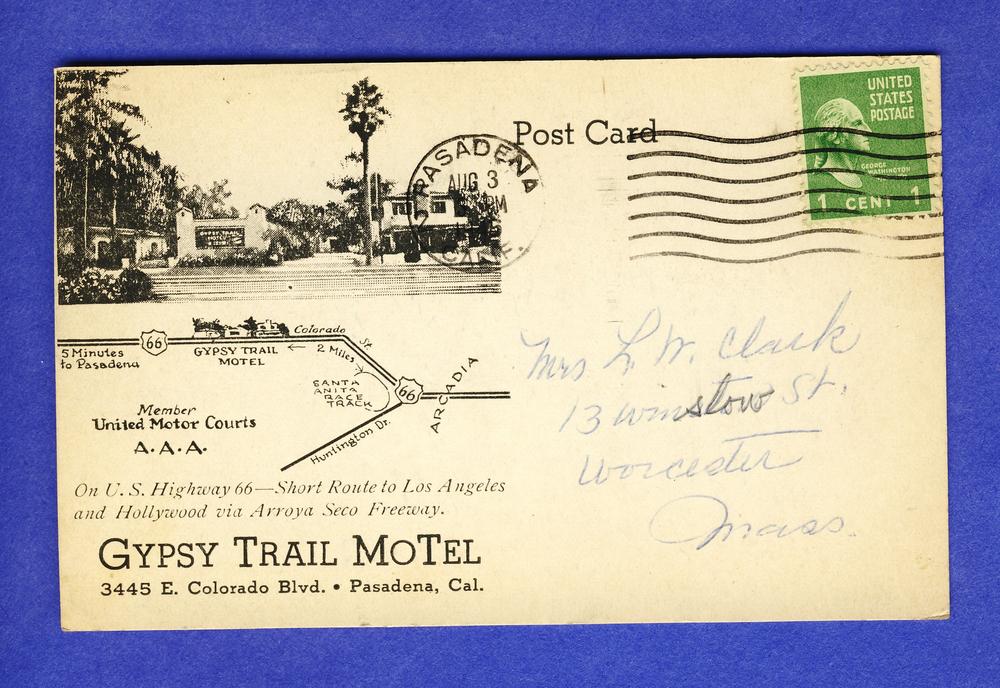 Post Card
PASADENA
AUG 3
PM
CALIF.
UNITED
STATES
POSTAGE
GEORGE
WASHINGTON
1 CENT 1
GYPSY TRAIL
66
Colorado St.
5 Minutes
to Pasadena
GYPSY TRAIL
MOTEL
2 Miles
SANTA
ANITA
RACE
TRACK
66
ARCADIA
Huntington Dr.
Member
United Motor Courts
A.A.A.
On U. S. Highway 66—Short Route to Los Angeles
and Hollywood via Arroya Seco Freeway.
GYPSY TRAIL MOTEL
3445 E. Colorado Blvd. • Pasadena, Cal.
Mrs L. W. Clark
13 Winslow St.
Worcester
Mass.